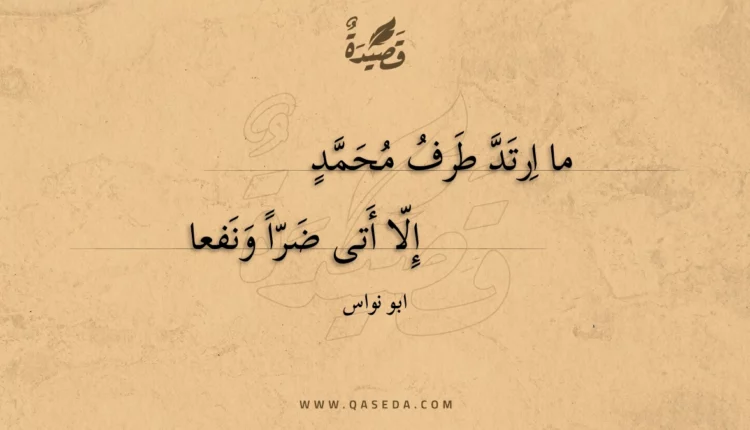 قَصِيدَةٌ
ما اِرتَدَّ طَرفُ مُحَمَّدٍ
إِلّا أَتى ضَرّاً وَنَفعا
ابو نواس
WWW.QASEDA.COM